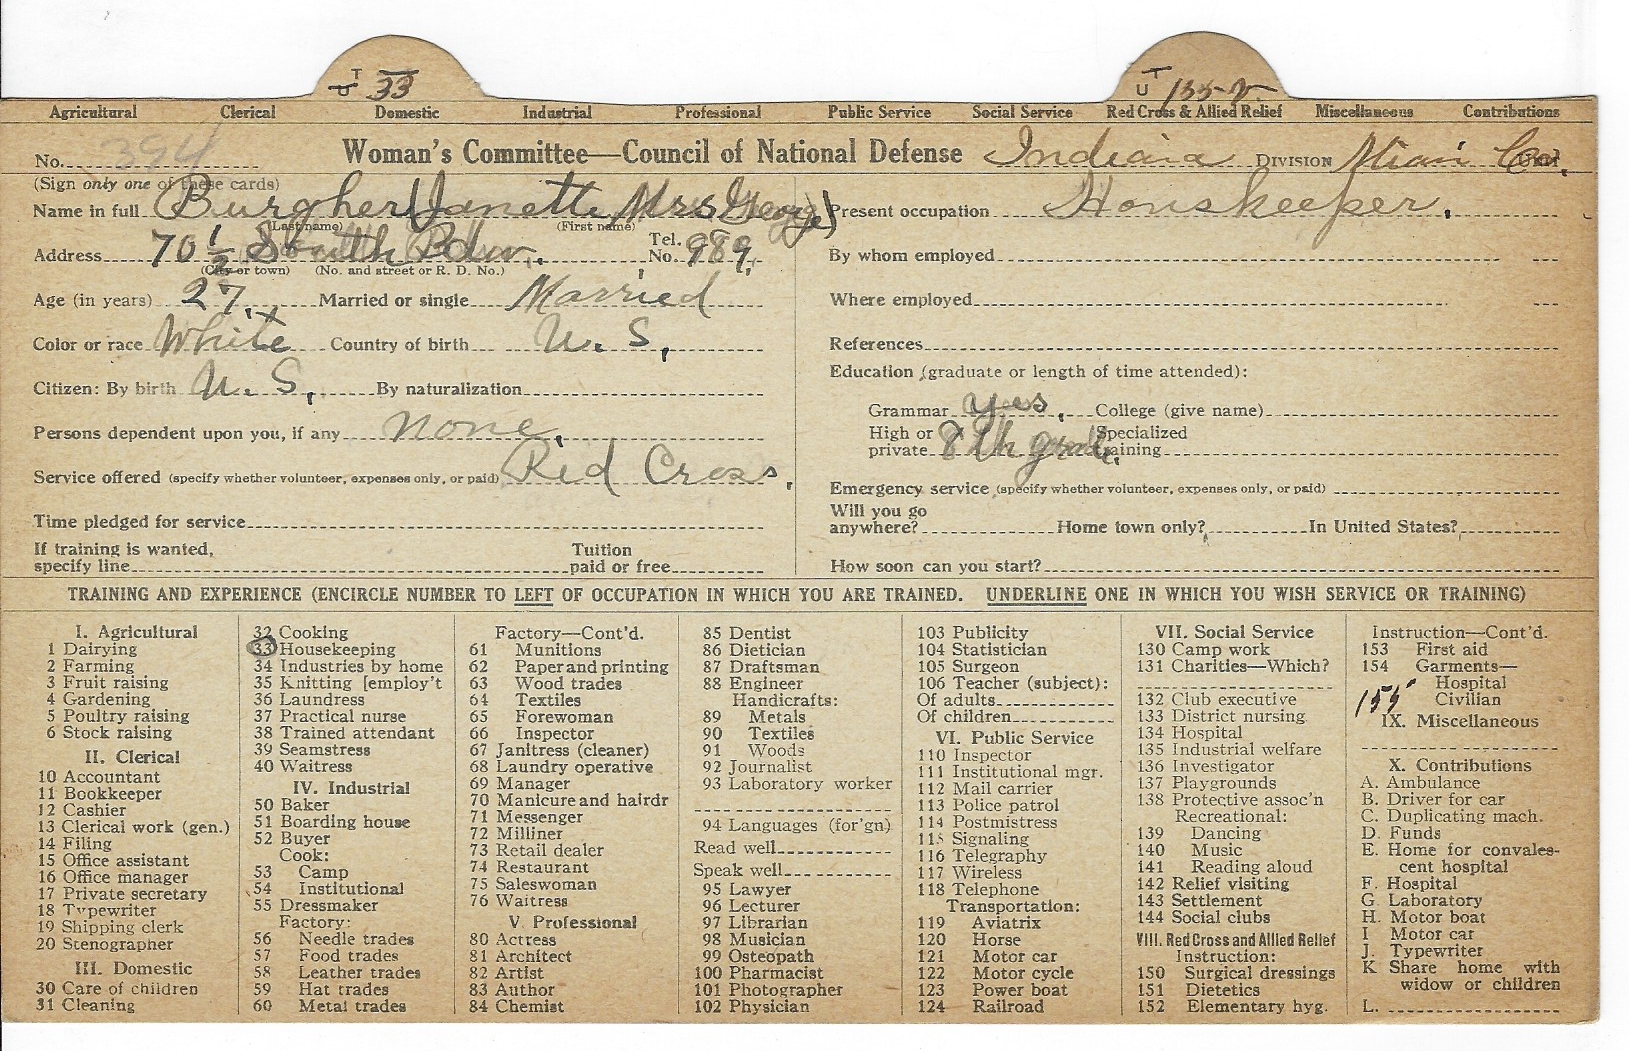 T U 33 T U 155-V
Agricultural Clerical Domestic Industrial Professional Public Service Social Service Red Cross & Allied Relief Miscellaneous Contributions
No. 394 Woman's Committee—Council of National Defense Indiana DIVISION Miami Co. Unit
(Sign only one of these cards)
Name in full Burgher (Janette, Mrs George)
(Last name) (First name)
Address 70 1/2 South Bdw. Tel. No. 989,
(City or town) (No. and street or R. D. No.)
Age (in years) 27, Married or single Married
Color or race White Country of birth U. S,
Citizen: By birth U. S, By naturalization
Persons dependent upon you, if any none,
Service offered (specify whether volunteer, expenses only, or paid) Red Cross,
Time pledged for service
If training is wanted,
specify line Tuition paid or free
Present occupation Houskeeper.
By whom employed
Where employed
References
Education (graduate or length of time attended):
Grammar yes, College (give name)
High or private 8th grade, Specialized training
Emergency service (specify whether volunteer, expenses only, or paid)
Will you go
anywhere? Home town only? In United States?
How soon can you start?
TRAINING AND EXPERIENCE (ENCIRCLE NUMBER TO LEFT OF OCCUPATION IN WHICH YOU ARE TRAINED. UNDERLINE ONE IN WHICH YOU WISH SERVICE OR TRAINING)
I. Agricultural
1 Dairying
2 Farming
3 Fruit raising
4 Gardening
5 Poultry raising
6 Stock raising
II. Clerical
10 Accountant
11 Bookkeeper
12 Cashier
13 Clerical work (gen.)
14 Filing
15 Office assistant
16 Office manager
17 Private secretary
18 Typewriter
19 Shipping clerk
20 Stenographer
III. Domestic
30 Care of children
31 Cleaning
32 Cooking
33 Housekeeping
34 Industries by home
35 Knitting [employ't
36 Laundress
37 Practical nurse
38 Trained attendant
39 Seamstress
40 Waitress
IV. Industrial
50 Baker
51 Boarding house
52 Buyer
Cook:
53 Camp
54 Institutional
55 Dressmaker
Factory:
56 Needle trades
57 Food trades
58 Leather trades
59 Hat trades
60 Metal trades
Factory—Cont'd.
61 Munitions
62 Paper and printing
63 Wood trades
64 Textiles
65 Forewoman
66 Inspector
67 Janitress (cleaner)
68 Laundry operative
69 Manager
70 Manicure and hairdr
71 Messenger
72 Milliner
73 Retail dealer
74 Restaurant
75 Saleswoman
76 Waitress
V. Professional
80 Actress
81 Architect
82 Artist
83 Author
84 Chemist
85 Dentist
86 Dietician
87 Draftsman
88 Engineer
Handicrafts:
89 Metals
90 Textiles
91 Woods
92 Journalist
93 Laboratory worker
94 Languages (for'gn)
Read well
Speak well
95 Lawyer
96 Lecturer
97 Librarian
98 Musician
99 Osteopath
100 Pharmacist
101 Photographer
102 Physician
103 Publicity
104 Statistician
105 Surgeon
106 Teacher (subject):
Of adults
Of children
VI. Public Service
110 Inspector
111 Institutional mgr.
112 Mail carrier
113 Police patrol
114 Postmistress
115 Signaling
116 Telegraphy
117 Wireless
118 Telephone
Transportation:
119 Aviatrix
120 Horse
121 Motor car
122 Motor cycle
123 Power boat
124 Railroad
VII. Social Service
130 Camp work
131 Charities—Which?
132 Club executive
133 District nursing
134 Hospital
135 Industrial welfare
136 Investigator
137 Playgrounds
138 Protective assoc'n
Recreational:
139 Dancing
140 Music
141 Reading aloud
142 Relief visiting
143 Settlement
144 Social clubs
VIII. Red Cross and Allied Relief
Instruction:
150 Surgical dressings
151 Dietetics
152 Elementary hyg.
Instruction—Cont'd.
153 First aid
154 Garments—
Hospital
155 Civilian
IX. Miscellaneous
X. Contributions
A. Ambulance
B. Driver for car
C. Duplicating mach.
D. Funds
E. Home for convales-
cent hospital
F. Hospital
G. Laboratory
H. Motor boat
I Motor car
J. Typewriter
K Share home with
widow or children
L.